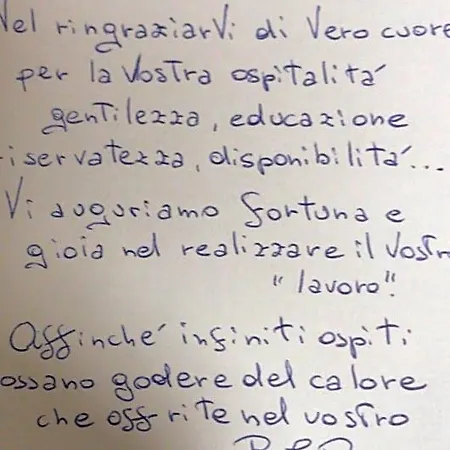 Nel ringraziarVi di Vero cuore
per la Vostra ospitalitá
gentilezza, educazione
riservatezza, disponibilitá...
Vi auguriamo fortuna e
gioia nel realizzare il Vostro
"lavoro".
Affinché infiniti ospiti
possano godere del calore
che offrite nel vostro